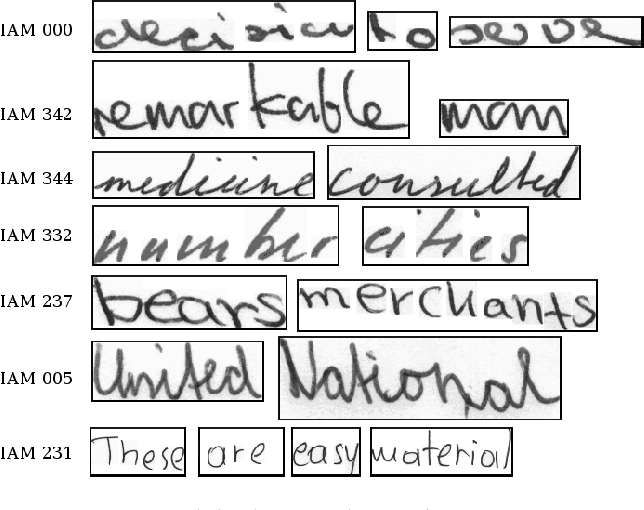 IAM 000 decision to serve
IAM 342 remarkable man
IAM 344 medicine consulted
IAM 332 number cities
IAM 237 bears merchants
IAM 005 United National
IAM 231 These are easy material